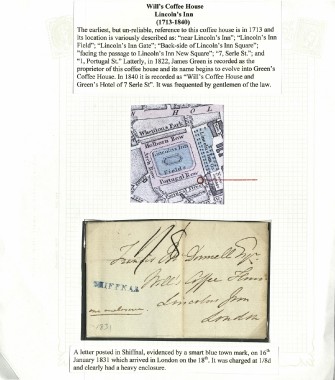 Will's Coffee House
Lincoln's Inn
(1713-1840)
The earliest, but un-reliable, reference to this coffee house is in 1713 and
its location is variously described as: "near Lincoln's Inn"; "Lincoln's Inn
Field"; "Lincoln's Inn Gate"; "Back-side of Lincoln's Inn Square";
"facing the passage to Lincoln's Inn New Square"; "7, Serle St."; and
"1, Portugal St." Latterly, in 1822, James Green is recorded as the
proprietor of this coffee house and its name begins to evolve into Green's
Coffee House. In 1840 it is recorded as "Will's Coffee House and
Green's Hotel of 7 Serle St". It was frequented by gentlemen of the law.
H O L
Whetstones Park
Holborn Row
Lincolns Inn
Fields
Portugal Row
1/8
Esqr.
Will's Coffee House
SHIFFNAL
Lincolns Inn
London
1831
A letter posted in Shiffnal, evidenced by a smart blue town mark, on 16th
January 1831 which arrived in London on the 18th. It was charged at 1/8d
and clearly had a heavy enclosure.